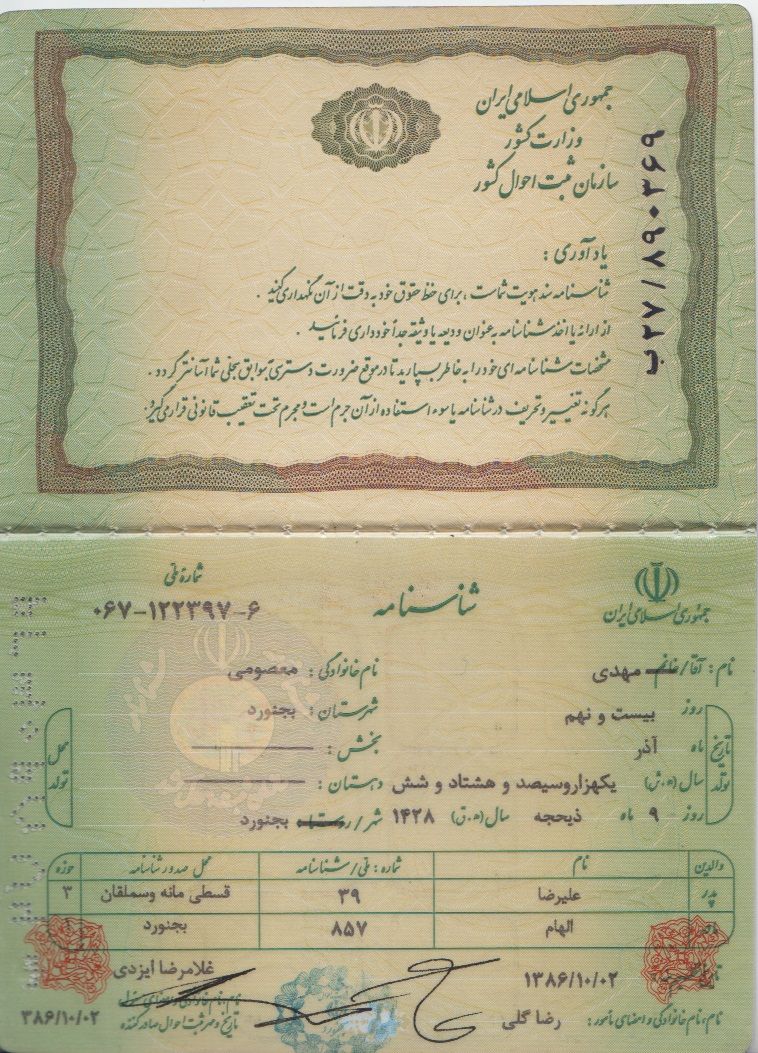 جمهوری اسلامی ایران
وزارت کشور
سازمان ثبت احوال کشور
ب ۲۷ / ۸۹۰۳۶۹
یادآوری :
شناسنامه سند هویت شماست ، برای حفظ حقوق خود به دقت از آن نگهداری کنید .
از ارائه یا اخذ شناسنامه به عنوان ودیعه یا وثیقه جداً خودداری فرمائید .
مشخصات شناسنامه ای خود را به خاطر بسپارید تا در موقع ضرورت دسترسی به سوابق سجلی شما آسانتر گردد .
هرگونه تغییر و تحریف در شناسنامه یا سوء استفاده از آن جرم است و مجرم تحت تعقیب قانونی قرار می‌گیرد .
جمهوری اسلامی ایران
شناسنامه
شمارهٔ ملی
۰۶۷-۱۲۲۳۹۷-۶
نام : آقا/خانم مهدی نام خانوادگی : معصومی
تاریخ تولد روز بیست و نهم محل تولد شهرستان : بجنورد
ماه آذر بخش :
سال (ه.ش) یکهزاروسیصد و هشتاد و شش دهستان :
روز ۹ ماه ذیحجه سال (ه.ق) ۱۴۲۸ شهر/روستا بجنورد
والدین نام شماره : ملی/شناسنامه محل صدور شناسنامه حوزه
پدر علیرضا ۳۹ قسطی مانه وسملقان ۳
مادر الهام ۸۵۷ بجنورد
۱۳۸۶/۱۰/۰۲ غلامرضا ایزدی
نام، نام خانوادگی و امضای مأمور : رضا گلی
تاریخ و مهر ثبت احوال صادرکننده ۳۸۶/۱۰/۰۲